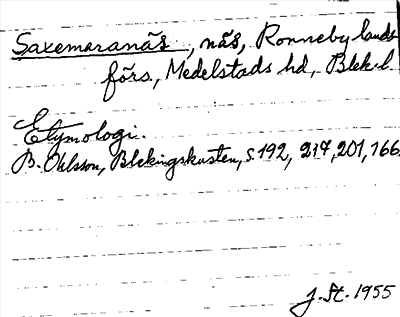 Saxemaranäs, näs, Ronneby lands
förs., Medelstads hd, Blek. l.
Etymologi.
B. Ohlsson, Blekingskusten, s. 192, 217, 201, 166.
J. St. 1955